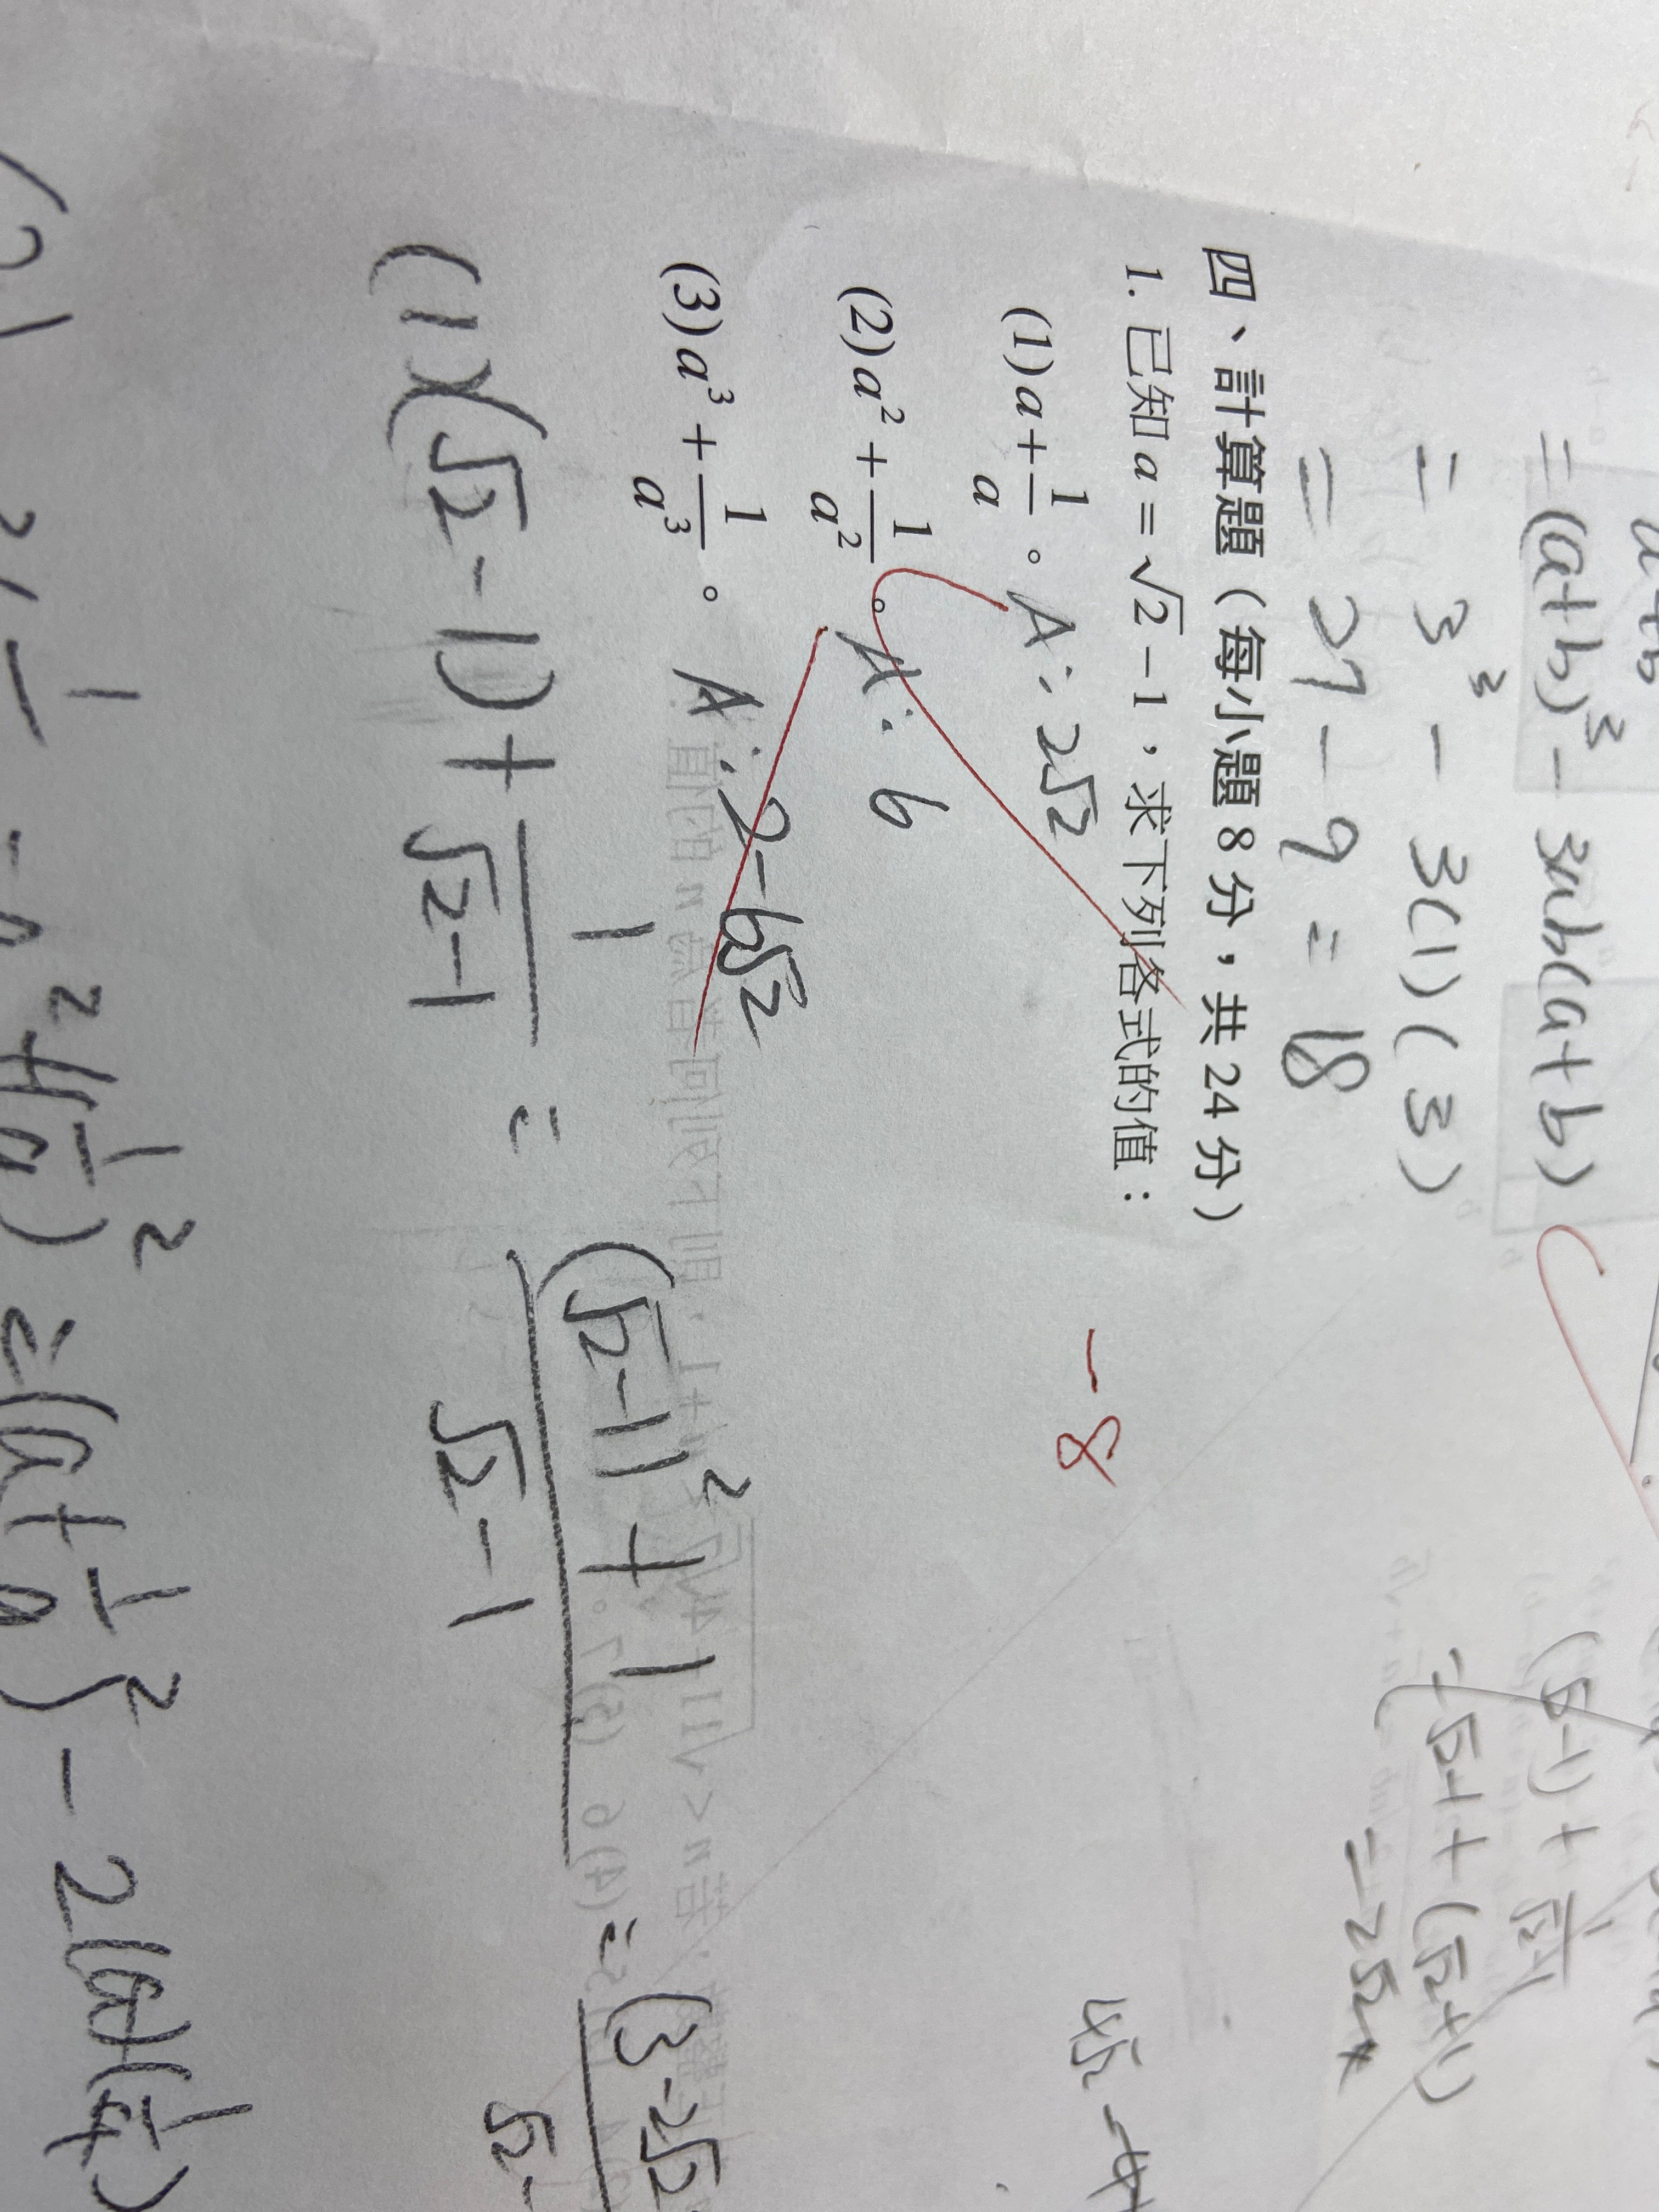 a+b
= (a+b)³ - 3ab(a+b)
= 3³ - 3(1)(3)
= 27 - 9 = 18
四、計算題（每小題 8 分，共 24 分）
1. 已知 a = √2 - 1，求下列各式的值：
-8
(1) a + 1/a 。 A: 2√2
(2) a² + 1/a² 。 A: 6
(3) a³ + 1/a³ 。 A: 2-6√2
(√2-1) + 1/(√2-1)
= √2-1 + (√2+1)
= 2√2
4√2 - 4
(1) (√2-1) + 1/(√2-1) = ((√2-1)²+1)/(√2-1) = (3-2√2
√2-
(2) a² + (1/a)² = (a+1/a)² - 2(a)(1/a)